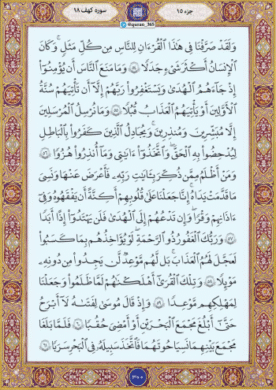 سوره کهف ۱۸
@quran_365
جزء ۱۵
وَلَقَدْ صَرَّفْنَا فِي هَٰذَا الْقُرْءَانِ لِلنَّاسِ مِن كُلِّ مَثَلٍ ۚ وَكَانَ
الْإِنسَانُ أَكْثَرَ شَيْءٍ جَدَلًا ﴿٥٤﴾ وَمَا مَنَعَ النَّاسَ أَن يُؤْمِنُوٓا
إِذْ جَآءَهُمُ الْهُدَىٰ وَيَسْتَغْفِرُوا رَبَّهُمْ إِلَّآ أَن تَأْتِيَهُمْ سُنَّةُ
الْأَوَّلِينَ أَوْ يَأْتِيَهُمُ الْعَذَابُ قُبُلًا ﴿٥٥﴾ وَمَا نُرْسِلُ الْمُرْسَلِينَ
إِلَّا مُبَشِّرِينَ وَمُنذِرِينَ ۚ وَيُجَادِلُ الَّذِينَ كَفَرُوا بِالْبَاطِلِ
لِيُدْحِضُوا بِهِ الْحَقَّ ۖ وَاتَّخَذُوٓا ءَايَاتِي وَمَآ أُنذِرُوا هُزُوًا ﴿٥٦﴾
وَمَنْ أَظْلَمُ مِمَّن ذُكِّرَ بِـَٔايَاتِ رَبِّهِ فَأَعْرَضَ عَنْهَا وَنَسِيَ
مَا قَدَّمَتْ يَدَاهُ ۚ إِنَّا جَعَلْنَا عَلَىٰ قُلُوبِهِمْ أَكِنَّةً أَن يَفْقَهُوهُ وَفِيٓ
ءَاذَانِهِمْ وَقْرًا ۖ وَإِن تَدْعُهُمْ إِلَى الْهُدَىٰ فَلَن يَهْتَدُوٓا إِذًا أَبَدًا
﴿٥٧﴾ وَرَبُّكَ الْغَفُورُ ذُو الرَّحْمَةِ ۖ لَوْ يُؤَاخِذُهُم بِمَا كَسَبُوا
لَعَجَّلَ لَهُمُ الْعَذَابَ ۚ بَل لَّهُم مَّوْعِدٌ لَّن يَجِدُوا مِن دُونِهِ
مَوْئِلًا ﴿٥٨﴾ وَتِلْكَ الْقُرَىٰٓ أَهْلَكْنَاهُمْ لَمَّا ظَلَمُوا وَجَعَلْنَا
لِمَهْلِكِهِم مَّوْعِدًا ﴿٥٩﴾ وَإِذْ قَالَ مُوسَىٰ لِفَتَاهُ لَآ أَبْرَحُ
حَتَّىٰٓ أَبْلُغَ مَجْمَعَ الْبَحْرَيْنِ أَوْ أَمْضِيَ حُقُبًا ﴿٦٠﴾ فَلَمَّا بَلَغَا
مَجْمَعَ بَيْنِهِمَا نَسِيَا حُوتَهُمَا فَاتَّخَذَ سَبِيلَهُ فِي الْبَحْرِ سَرَبًا ﴿٦١﴾
۳۰۰